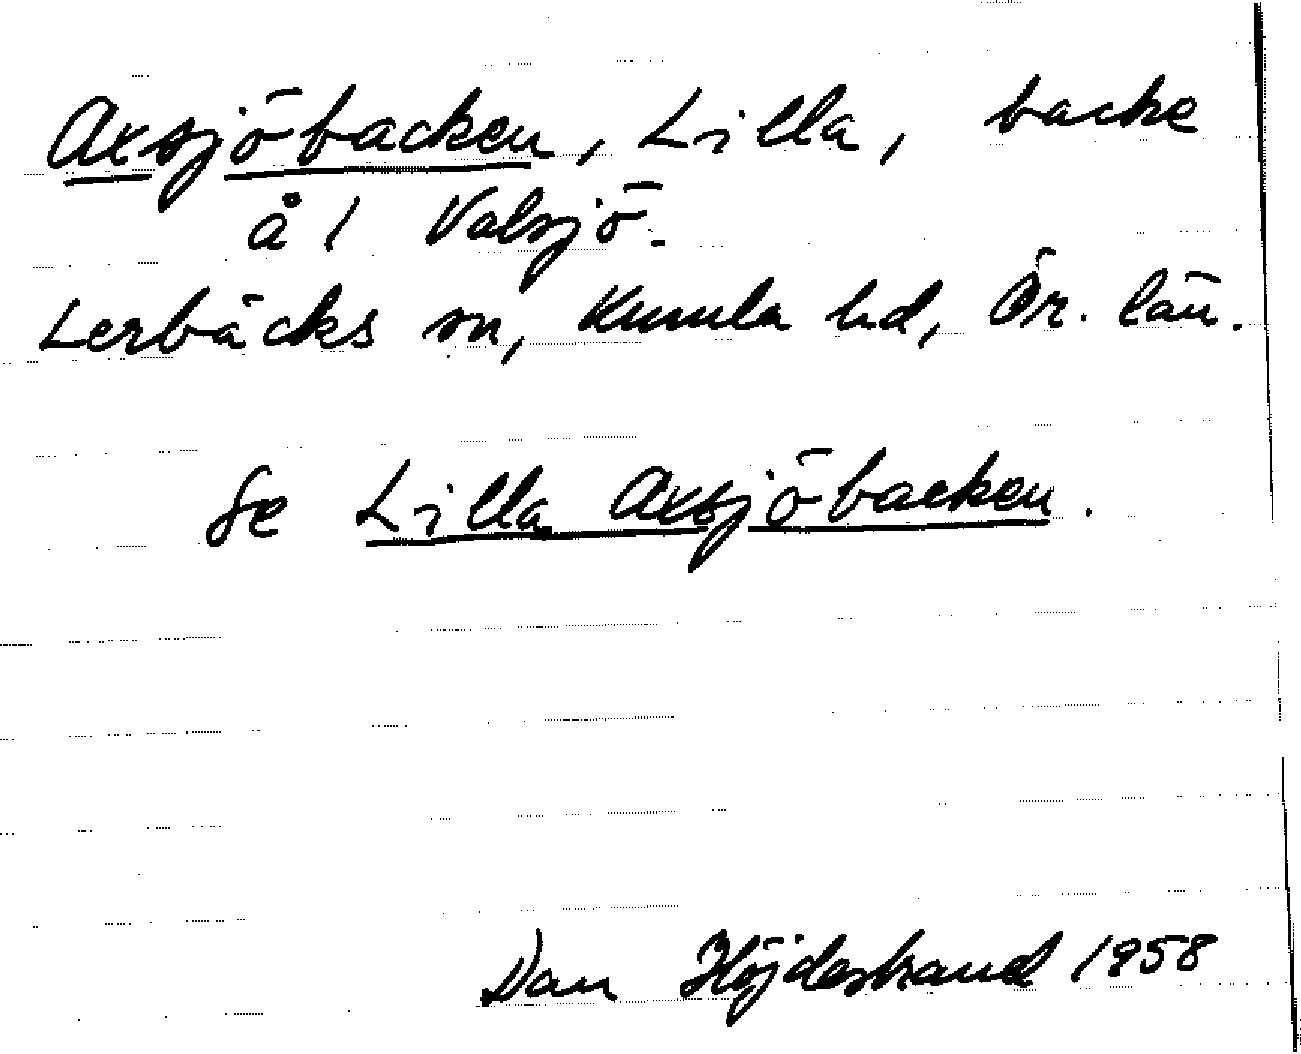 Axsjöbacken, Lilla, backe
å 1 Valsjö.
Lerbäcks sn, Kumla hd, Ör. län.
Se Lilla Axsjöbacken.
Dan Höjdestrand 1958